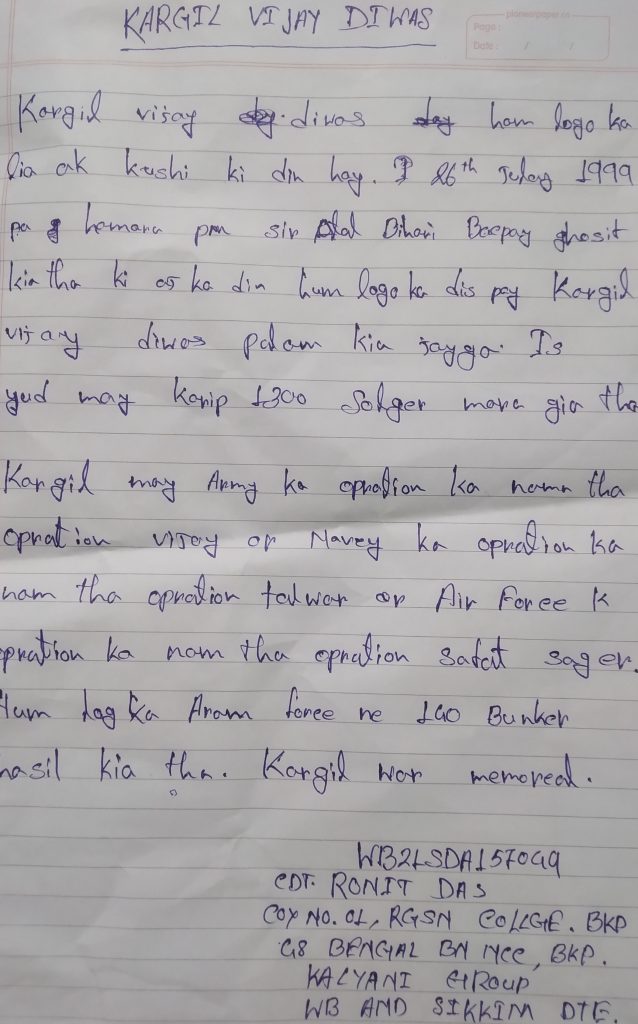 KARGIL VIJAY DIWAS
pioneerpaper.co
Page :
Date : / /
Kargil visay diwas ham logo ka
lia ak kushi ki din hay. 26th Juley 1999
pa hemara pm sir Atal Bihari Baepay ghosit
kia tha ki os ka din hum logo ka dis pay Kargil
vijary diwos palam kia jayga. Is
yud may Karip 1300 Solger mara gia tha
Kargil may Army ka opration ka namn tha
Opration VIJOY or Navey ka opration ka
nam tha opration talwar or Air Foree k
opration ka nam tha opration safat sager.
Hum log ka Aram foree ne 140 Bunker
hasil kia tha. Kargil war memoreal.
WB21SDA157049
CDT. RONIT DAS
COY NO. 01, RGSN COLLGE. BKP
48 BENGAL BN NCC, BKP.
KALYANI GROUP
WB AND SIKKIM DTE.